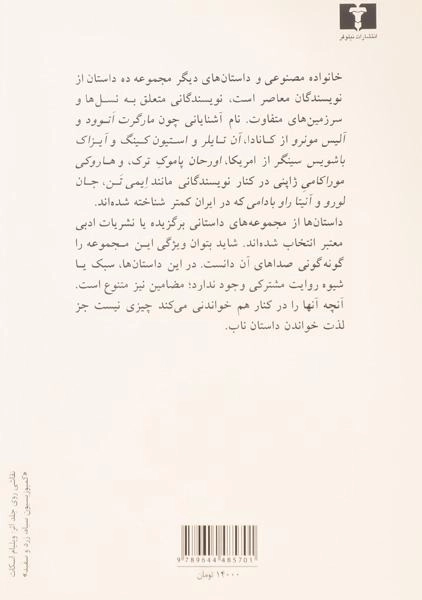 انتشارات نیلوفر
خانواده مصنوعی و داستان‌های دیگر مجموعه ده داستان از
نویسندگان معاصر است، نویسندگانی متعلق به نسل‌ها و
سرزمین‌های متفاوت. نام آشنایانی چون مارگرت آتوود و
آلیس مونرو از کانادا، آن تایلر و استیون کینگ و آیزاک
باشویس سینگر از امریکا، اورحان پاموک ترک، و هاروکی
موراکامی ژاپنی در کنار نویسندگانی مانند اِیمی تَن، جان
لورو و آنیتا راو بادامی که در ایران کمتر شناخته شده‌اند.
داستان‌ها از مجموعه‌های داستانی برگزیده یا نشریات ادبی
معتبر انتخاب شده‌اند. شاید بتوان ویژگی این مجموعه را
گونه‌گونی صداهای آن دانست. در این داستان‌ها، سبک یا
شیوه روایت مشترکی وجود ندارد؛ مضامین نیز متنوع است.
آنچه آنها را در کنار هم خواندنی می‌کند چیزی نیست جز
لذت خواندن داستان ناب.
نقاشی روی جلد اثر ویلیام اسکات
«کمپوزیسیون سیاه، زرد و سفید»
9 789644 485701
۱۴۰۰۰ تومان